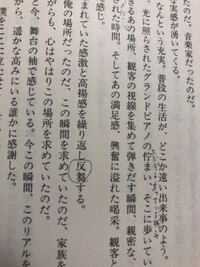 たのだ。音楽家だったのだ。
な実感が湧いてくる。
なんという充実。普段の生活が、どこか遠い出来事のよう。
光に照らされたグランドピアノの佇まい。そこに歩いてい
きるあの場所、観客の視線を集めて弾きだす瞬間、親密な、
された時間。そしてあの満足感、興奮に溢れた喝采。観客と
感じ。
まれていた感激と高揚感を繰り返し反芻する。
俺の場所だったのだ、この瞬間を求めていたのだ、家族を
がらも、心はやはりこの場所を求めていたのだ。
と今、舞台の袖で感じている。今この瞬間、このリアルを
から、遥かな高みにいる誰かに感謝した。